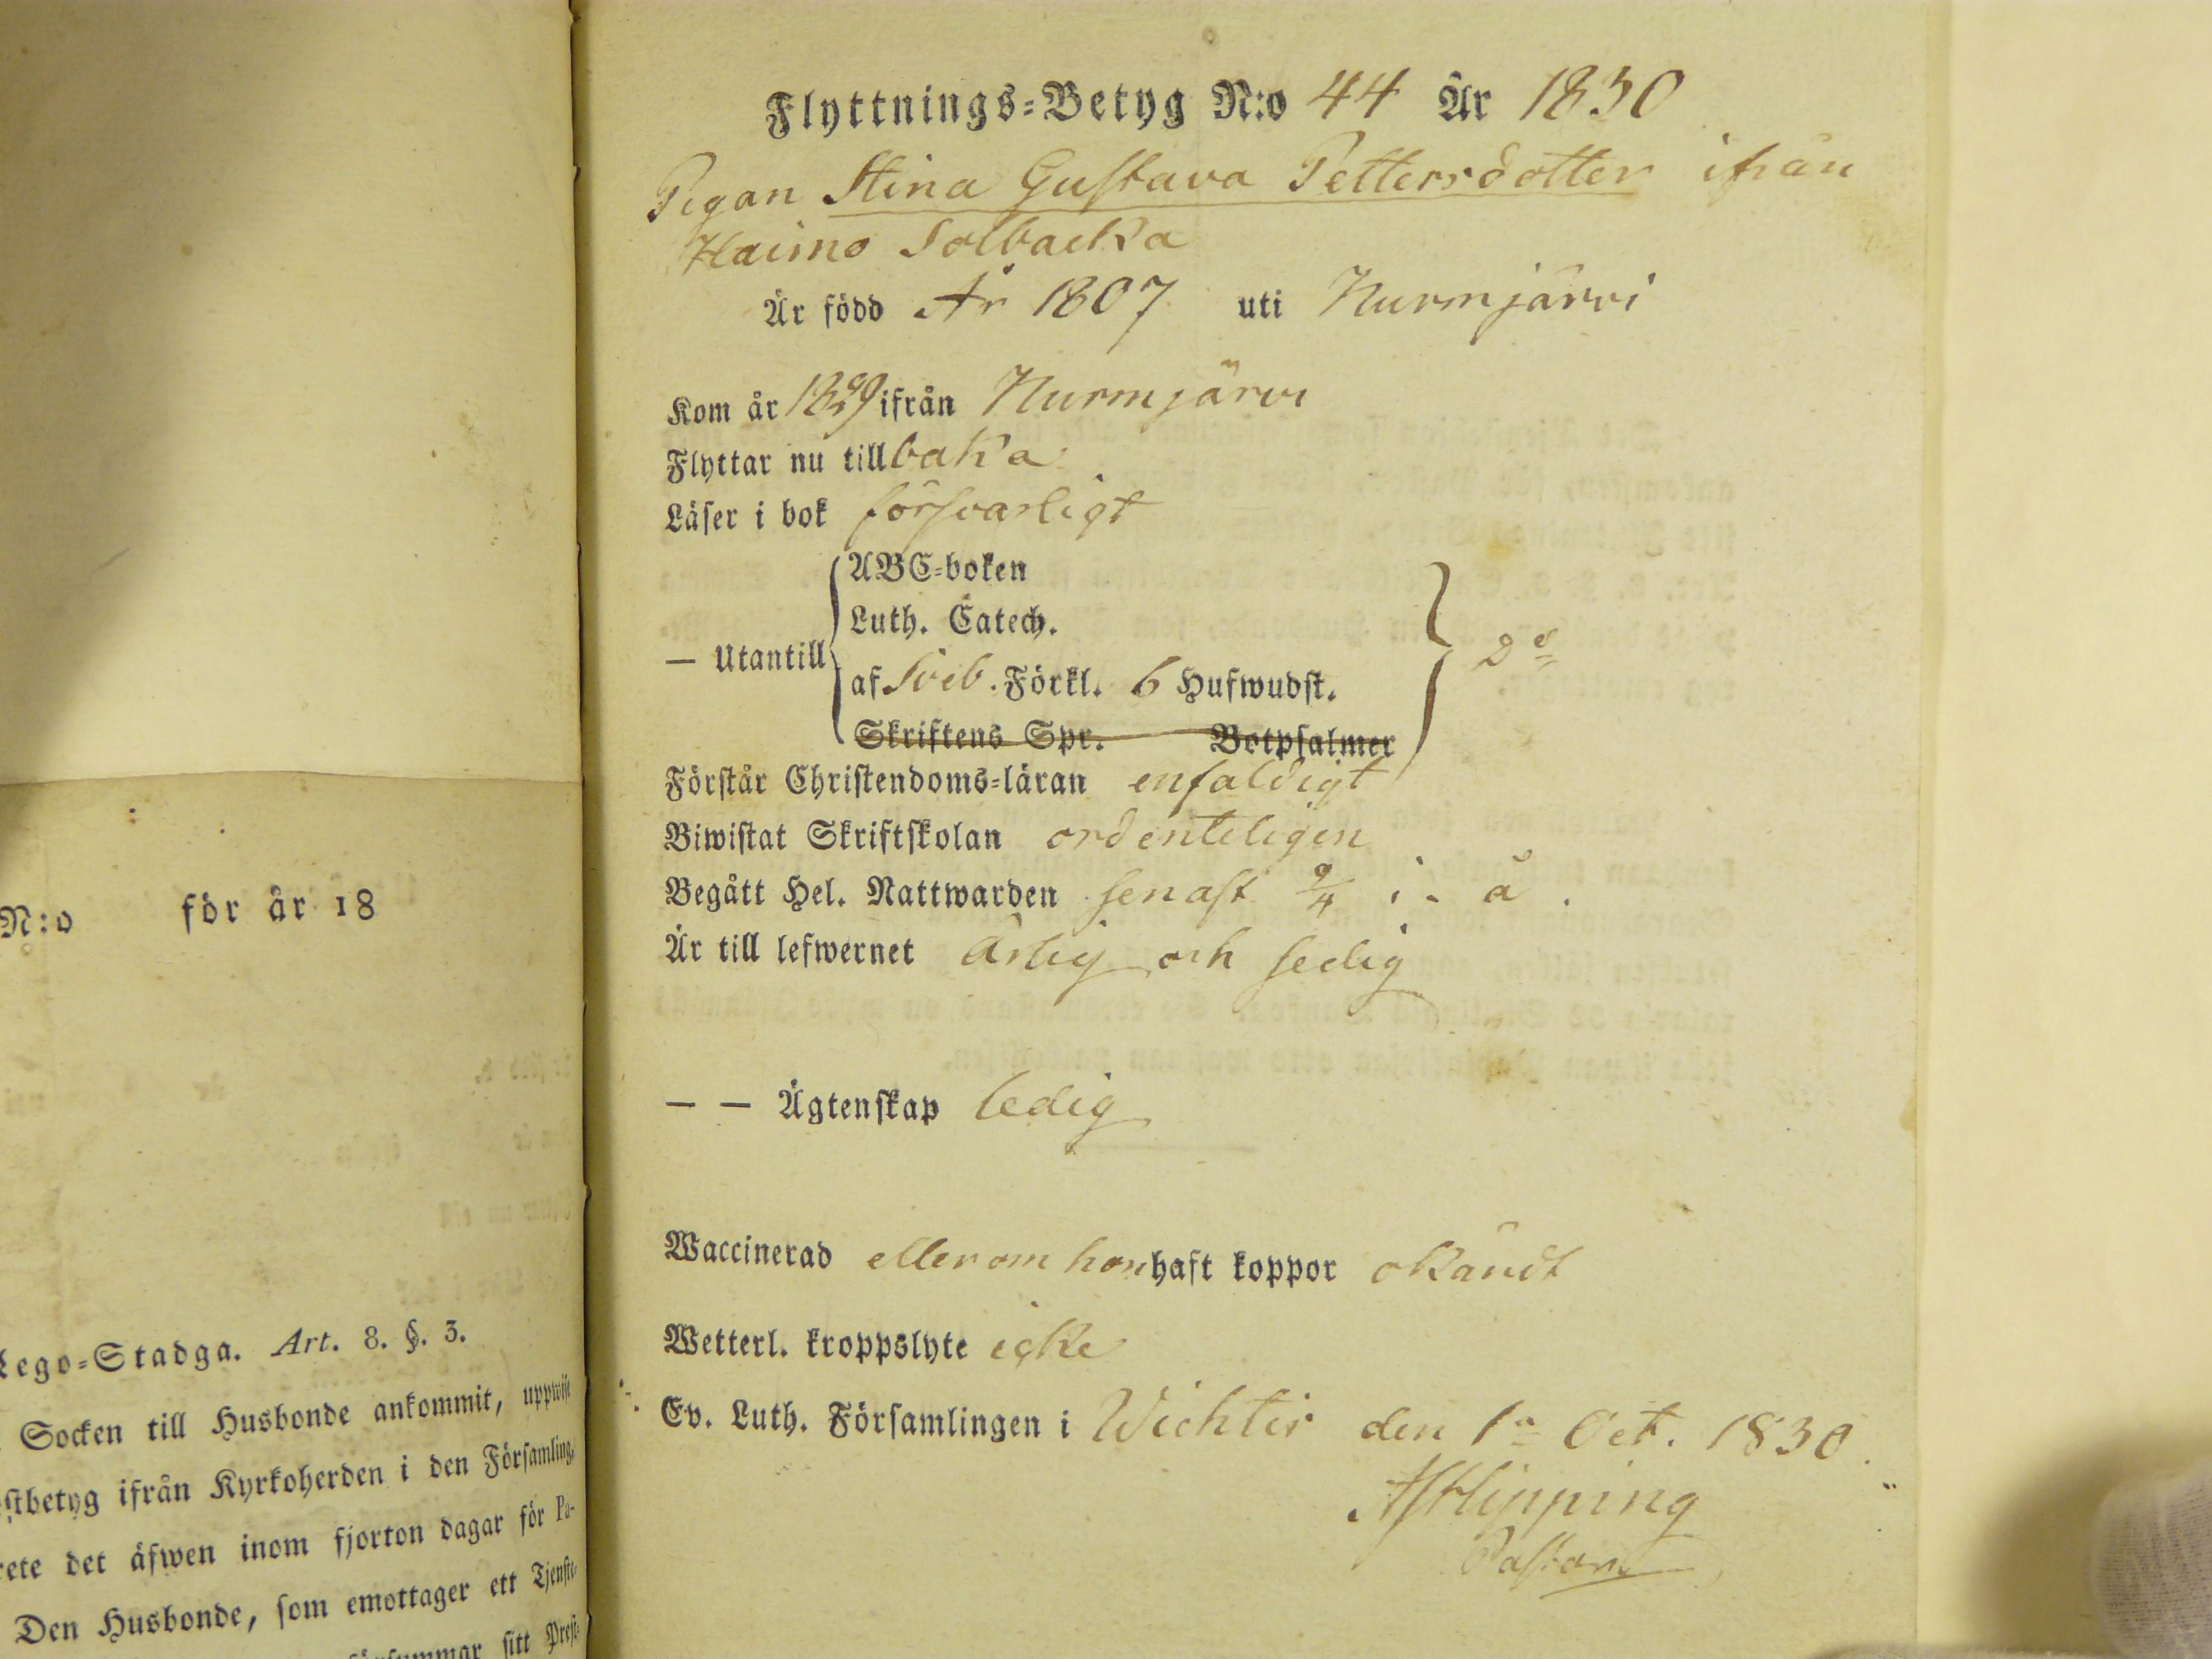 N:o för år 18
Lego-Stadga. Art. 8. §. 3.
Socken till Husbonde ankommit, uppwise
stbetyg ifrån Kyrkoherden i den Församling,
rete det äfwen inom fjorton dagar för Pa-
Den Husbonde, som emottager ett Tjenste-
försummar sitt Prest-
Flyttnings-Betyg N:o 44 År 1830
Pigan Stina Gustava Pettersdotter ifrån
Haimo Solbacka
Är född År 1807 uti Nurmjärvi
Kom år 1829 ifrån Nurmjärvi
Flyttar nu tillbaka
Läser i bok försvarligt
— Utantill
ABC-boken
Luth. Catech.
af Sveb. Förkl. 6 Hufwudst.
Skriftens Spr. Botpsalmer
Förstår Christendoms-läran enfaldigt
Biwistat Skriftskolan ordenteligen
Begått Hel. Nattwarden senast 9/4 i. å.
Är till lefwernet ärlig och sedig
— — Ägtenskap ledig
Waccinerad eller om hon haft koppor okändt
Wetterl. kroppslyte icke
Ev. Luth. Församlingen i Wichtis den 1a Oct. 1830.
AJ Hipping
Pastor